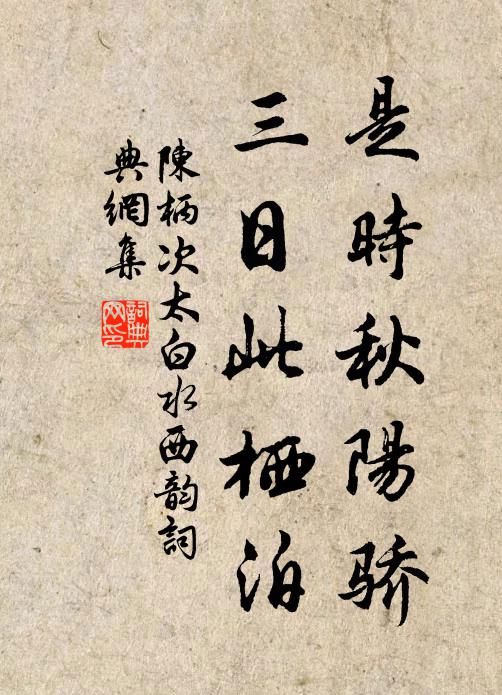 是時秋陽骄
三日此栖泊
陳柄次太白水西韵詞
典網集
詞典网印